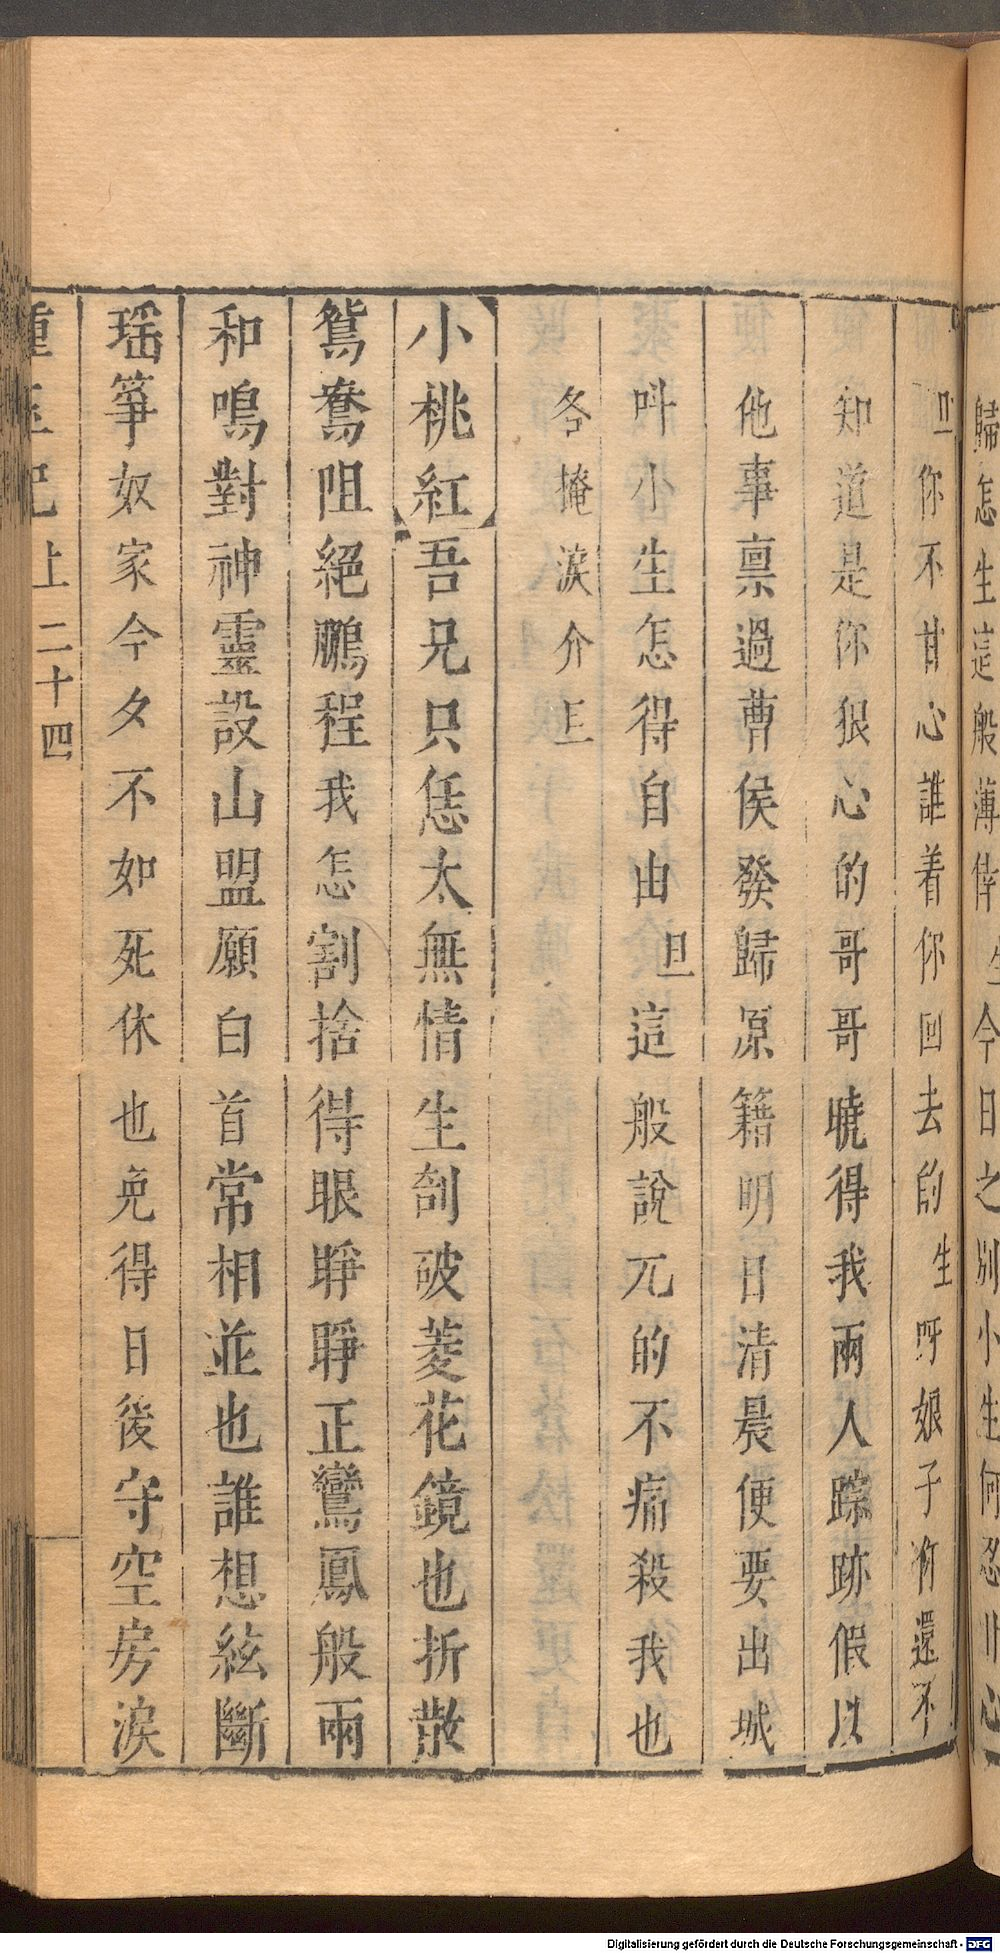 歸怎生這般薄倖 生今日之別小生何忍
旦你不甘心誰着你回去的 生呀娘子你還不
知道是你狠心的哥哥曉得我兩人踪跡假以
他事禀過曹侯發歸原籍明日清晨便要出城
呌小生怎得自由 旦這般說兀的不痛殺我也
各掩淚介
小桃紅 吾兄只恁太無情生刮破菱花鏡也折散
鴛鴦阻絕鵬程我怎割捨得眼睜睜正鸞鳳般兩
和鳴對神靈設山盟願白首常相並也誰想絃斷
瑶箏奴家今夕不如死休也免得日後守空房淚
記上 二十四
Digitalisierung gefördert durch die Deutsche Forschungsgemeinschaft - DFG